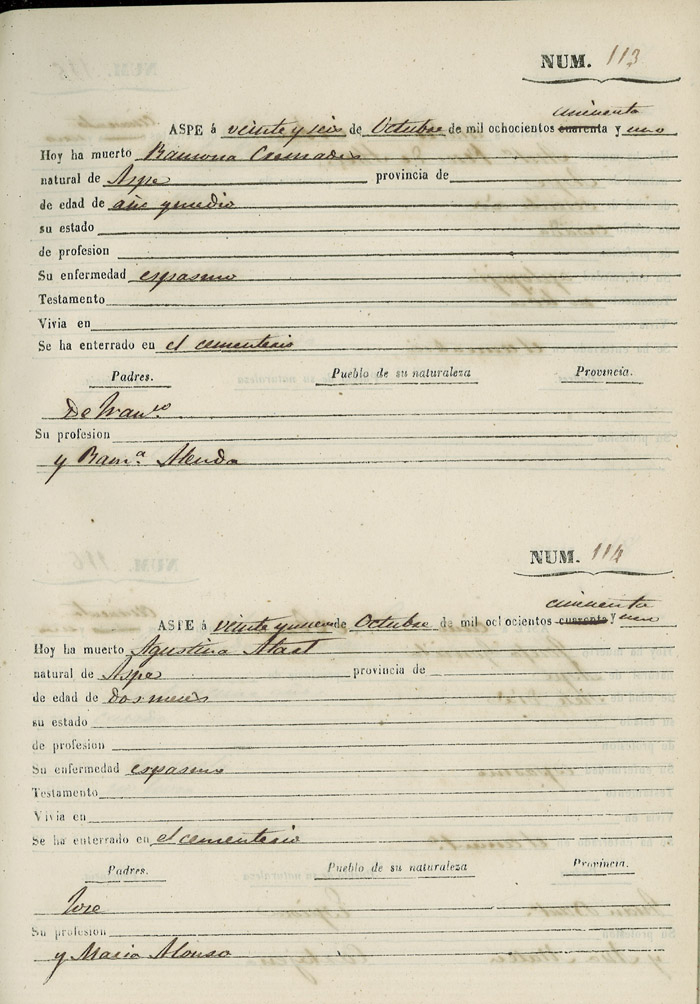 NUM. 113
cincuenta
ASPE á veinte y seis de Octubre de mil ochocientos cuarenta y uno
Hoy ha muerto Ramona Cremades
natural de Aspe provincia de
de edad de año y medio
su estado
de profesion
Su enfermedad espasmo
Testamento
Vivia en
Se ha enterrado en el cementerio
Padres. Pueblo de su naturaleza Provincia.
De Fran.co
Su profesion
y Ram.a Alenda
NUM. 114
cincuenta
ASPE á veinte y nueve de Octubre de mil ochocientos cuarenta y uno
Hoy ha muerto Agustina
natural de Aspe provincia de
de edad de dos meses
su estado
de profesion
Su enfermedad espasmo
Testamento
Vivia en
Se ha enterrado en el cementerio
Padres. Pueblo de su naturaleza Provincia.
Jose
Su profesion
y Maria Alonso